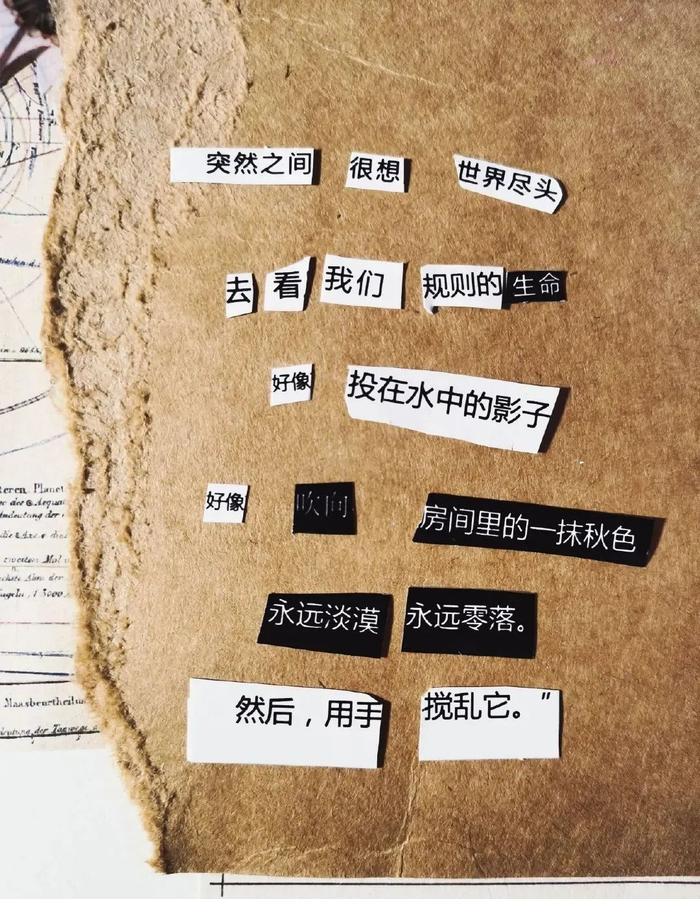 突然之间 很想 世界尽头
去 看 我们 规则的 生命
好像 投在水中的影子
好像 吹向 房间里的一抹秋色
永远淡漠 永远零落。
然后，用手 搅乱它。”
teren Planet
zweiten Mal
Maasbeurtheilun